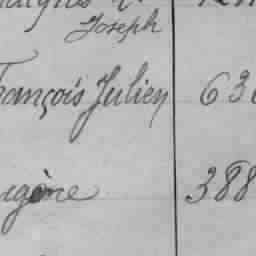 Joseph
François Julien 63
ugène 388